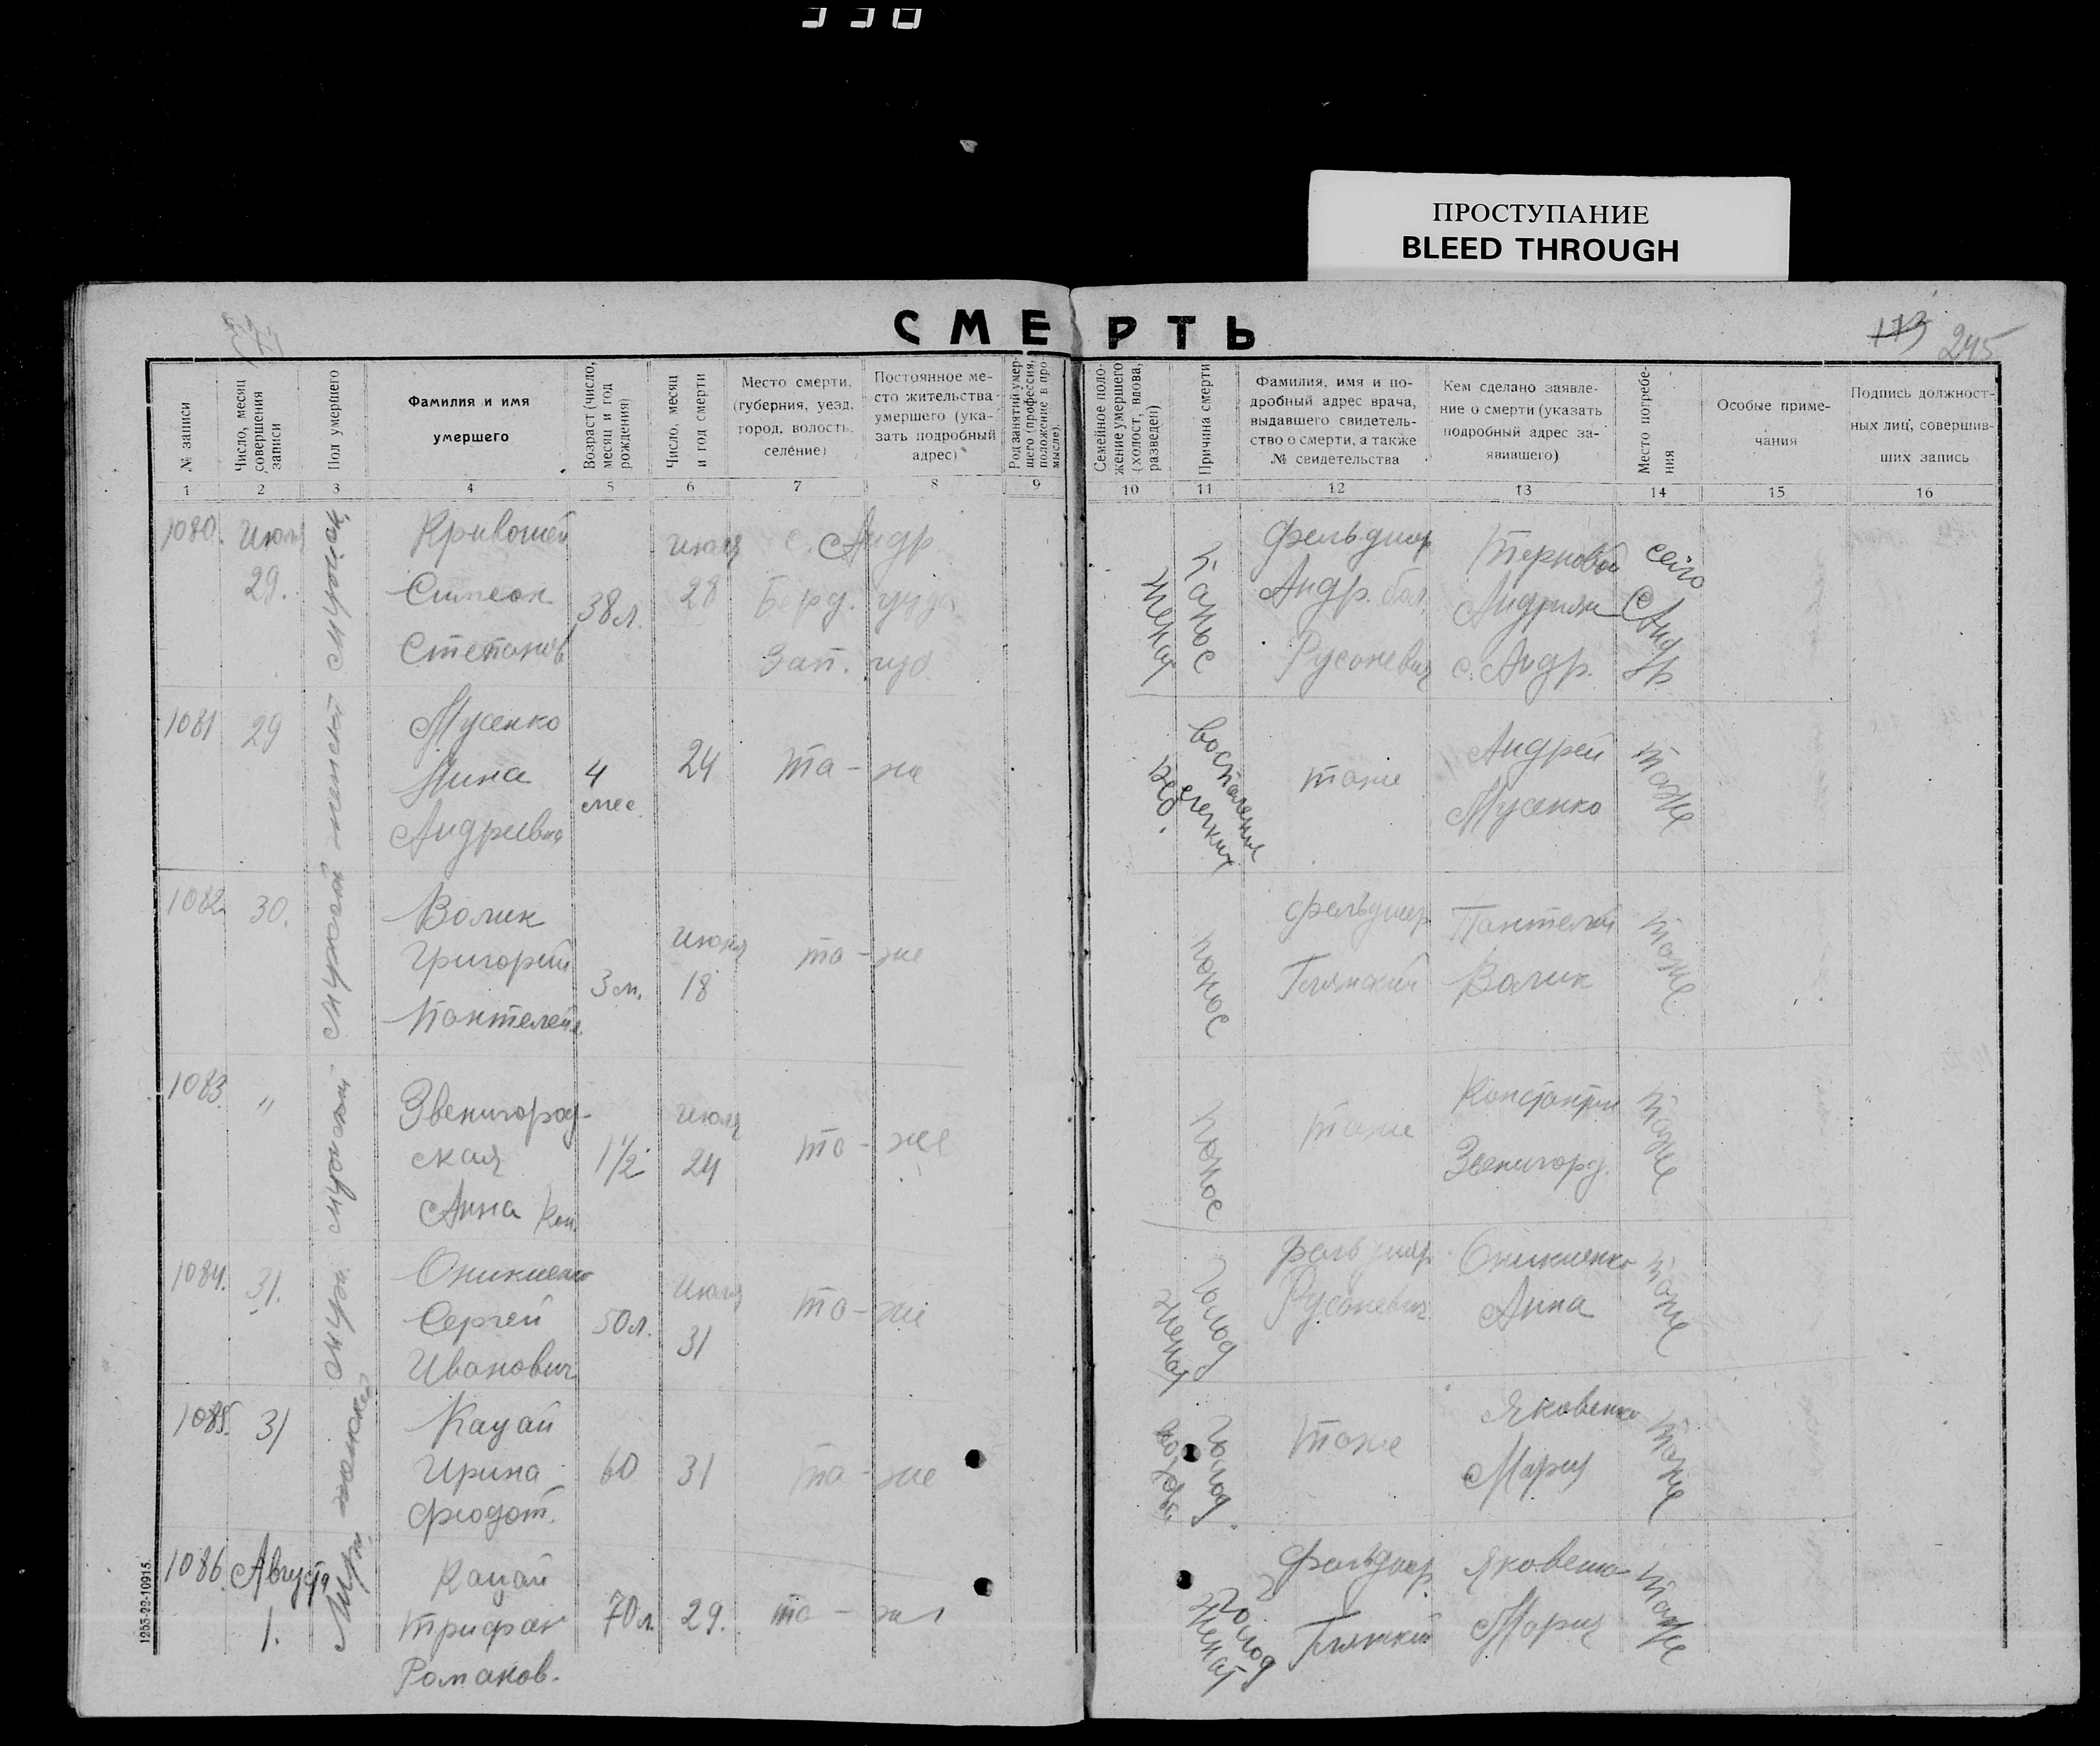 ПРОСТУПАНИЕ
BLEED THROUGH
СМЕРТЬ
113 245
№ записи
Число, месяц совершения записи
Пол умершего
Фамилия и имя
умершего
Возраст (число, месяц и год рождения)
Число, месяц и год смерти
Место смерти,
(губерния, уезд,
город, волость,
селение)
Постоянное ме-
сто жительства
умершего (ука-
зать подробный
адрес)
Род занятий умер-
шего (профессия,
положение в про
мысле).
Семейное поло-
жение умершего
(холост, вдова,
разведен)
Причина смерти
Фамилия, имя и по-
дробный адрес врача,
выдавшего свидетель-
ство о смерти, а также
№ свидетельства
Кем сделано заявле-
ние о смерти (указать
подробный адрес за-
явившего)
Место погребе-
ния
Особые приме-
чания
Подпись должност-
ных лиц, совершив-
ших запись
1 2 3 4 5 6 7 8 9 10 11 12 13 14 15 16
1080. Июля 29.
Кривошей
Симеон
Степанов
38 л.
июля 28
с. Андр.
Берд. уезда
Зап. губ.
женат
понос
фельдшер
Андр. бол.
Русоневич
Терновой
Андриян
с. Андр.
село Андр.
1081 29
женск
Мусенко
Нина
Андреевна
4 мес.
24
та-же
воспаление легких
тоже
Андрей
Мусенко
тоже
1082. 30.
мужской
Волик
Григорий
Пантелей.
3 м.
июня 18
та-же
понос
фельдшер
Пантелей
Волик
тоже
1083. "
Звенигород-
ская
Анна Кон.
1 1/2
июля 24
та-же
понос
тоже
Константин
Звенигород.
тоже
1084. 31.
Оникиенко
Сергей
Иванович
50 л.
июля 31
та-же
женат
голод
фельдшер
Русоневич
Оникиенко
Анна
тоже
1085. 31
женск
Кацай
Ирина
Федот.
60
31
та-же
голод
тоже
Яковенко
Мария
тоже
1086. Августа 1.
Муж.
Кацай
Трифон
Романов.
70 л.
29.
та-же
женат
голод
Фельдшер
Яковенко
Мария
тоже
1255-22-10915.